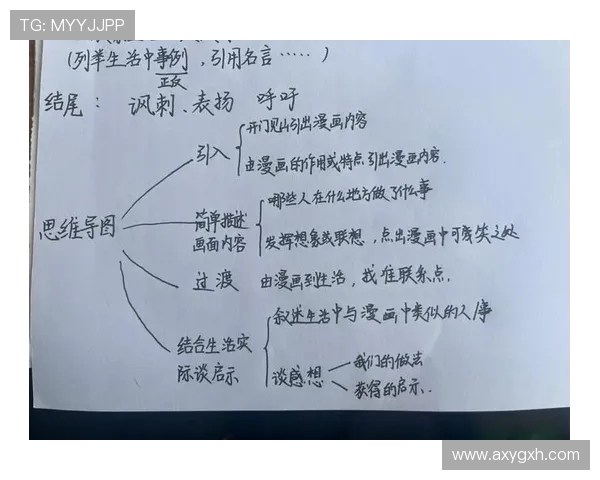 TG: MYYJJPP
(列举生活中事例,引用名言……)
正反
结尾: 讽刺、表扬 呼吁
思维导图
引入
开门见山引出漫画内容
由漫画的作用或特点引出漫画内容.
简单描述
画面内容
哪些人在什么地方做了什么事
发挥想象或联想,点出漫画中可笑之处
过渡 由漫画到生活,找准联系点.
结合生活实
际谈启示
叙述生活中与漫画中类似的人事
谈感想
我们的做法
获得的启示.
www.aygxh.com